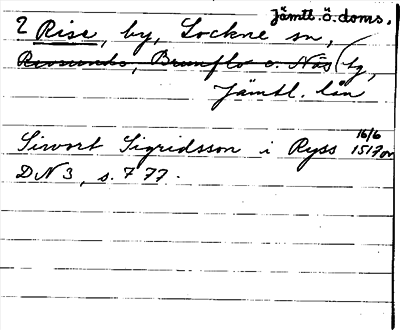 Jämtl. ö. doms.
2 Rise, by, Lockne sn,
Revsunds, Brunflo o. Näs tg,
Jämtl. län
Sivort Sigridsson i Ryss 16/6 1517 or
DN 3, s. 777.